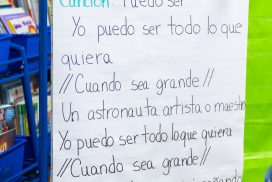 Canción: Puedo ser
Yo puedo ser todo lo que
quiera
//Cuando sea grande//
Un astronauta artista o maestro
Yo puedo ser todo lo que quiera
//Cuando sea grande//